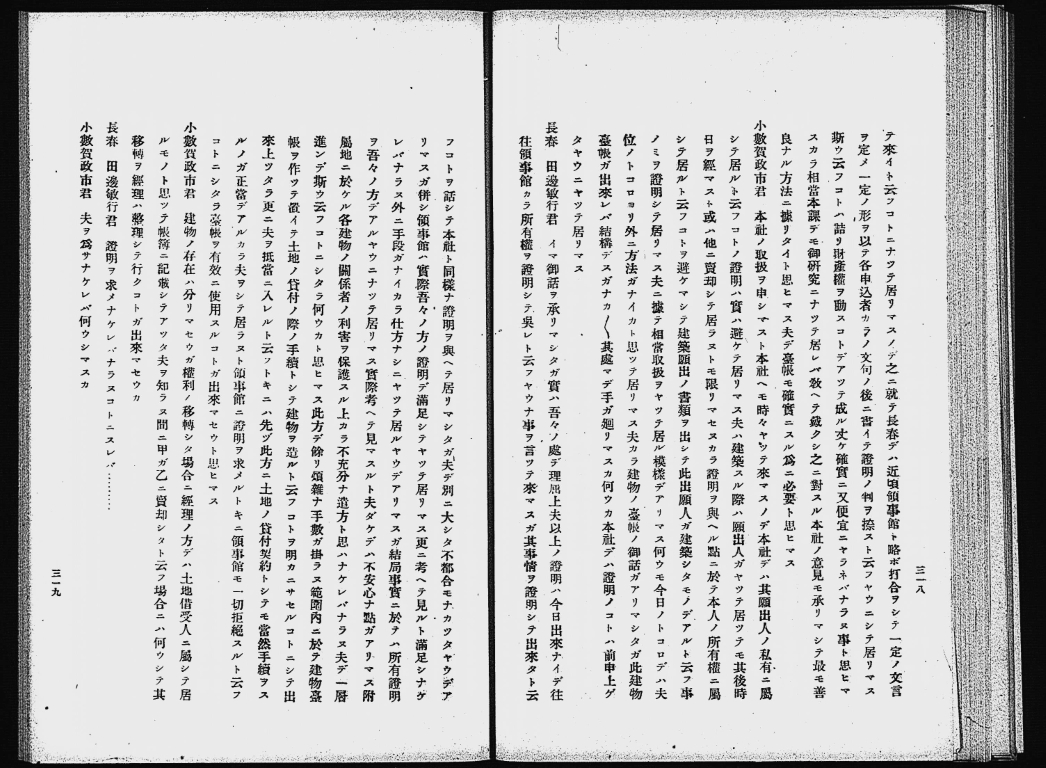 テ來イト云フコトニナツテ居リマスノデ之ニ就テ長春デハ近頃領事館ト略ボ打合ヲシテ一定ノ文言
ヲ定メ一定ノ形ヲ以テ各申込者カラノ文句ノ後ニ書イテ證明ノ判ヲ捺スト云フヤウニシテ居リマス
斯ウ云フコトハ詰リ財產權ヲ動スコトデアツテ成ル丈ケ確實ニ又便宜ニヤラネバナラヌ事ト思ヒマ
スカラ相當本課デモ御硏究ニナツテ居レバ敎ヘテ戴クシ之ニ對スル本社ノ意見モ承リマシテ最モ善
良ナル方法ニ據リタイト思ヒマス夫デ臺帳モ確實ニスル爲ニ必要ト思ヒマス
小數賀政市君 本社ノ取扱ヲ申シマスト本社ヘモ時々ヤツテ來マスノデ本社デハ其願出人ノ私有ニ屬
シテ居ルト云フコトノ證明ハ實ハ避ケテ居リマス夫ハ建築スル際ハ願出人ガヤツテ居ツテモ其後時
日ヲ經マスト或ハ他ニ賣却シテ居ラヌトモ限リマセヌカラ證明ヲ與ヘル點ニ於テ本人ノ所有權ニ屬
シテ居ルト云フコトヲ避ケマシテ建築願出ノ書類ヲ出シテ此出願人ガ建築シタモノデアルト云フ事
ノミヲ證明シテ居リマス夫ニ據テ相當取扱ヲヤツテ居ル模樣デアリマス何ウモ今日ノトコロデハ夫
位ノトコロヨリ外ニ方法ガナイカト思ツテ居リマス夫カラ建物ノ臺帳ノ御話ガアリマシタガ此建物
臺帳ガ出來レバ結構デスガナカ〱其處マデ手ガ廻リマスカ何ウカ本社デハ證明ノコトハ前申上ゲ
タヤウニヤツテ居リマス
長春 田邊敏行君 イマ御話ヲ承リマシタガ實ハ吾々ノ處デ理屈上夫以上ノ證明ハ今日出來ナイデ往
往領事館カラ所有權ヲ證明シテ吳レト云フヤウナ事ヲ言ツテ來マスガ其事情ヲ證明シテ出來タト云
三一八
フコトヲ話シテ本社ト同樣ナ證明ヲ與ヘテ居リマシタガ夫デ別ニ大シタ不都合モナカツタヤウデア
リマスガ併シ領事館ハ實際吾々ノ方ノ證明デ滿足シテヤツテ居リマス更ニ考ヘテ見ルト滿足シナケ
レバナラヌ外ニ手段ガナイカラ仕方ナシニヤツテ居ルヤウデアリマスガ結局事實ニ於テハ所有證明
ヲ吾々ノ方デアルヤウニナツテ居リマス實際考ヘテ見マスルト夫ダケデハ不安心ナ點ガアリマス附
屬地ニ於ケル各建物ノ關係者ノ利害ヲ保護スル上カラ不充分ナ遣方ト思ハナケレバナラヌ夫デ一層
進ンデ斯ウ云フコトニシタラ何ウカト思ヒマス此方デ餘リ煩雜ナ手數ガ掛ラヌ範圍內ニ於テ建物臺
帳ヲ作ツテ置イテ土地ノ貸付ノ際ノ手續トシテ建物ヲ造ルト云フコトヲ明カニサセルコトニシテ出
來上ツタラ更ニ夫ヲ抵當ニ入レルト云フトキニハ先ヅ此方ニ土地ノ貸付契約トシテモ當然手續ヲス
ルノガ正當デアルカラ夫ヲシテ居ラヌト領事館ニ證明ヲ求メルトキニ領事館モ一切拒絕スルト云フ
コトニシタラ臺帳ヲ有效ニ使用スルコトガ出來マセウト思ヒマス
小數賀政市君 建物ノ存在ハ分リマセウガ權利ノ移轉シタ場合ニ經理ノ方デハ土地借受人ニ屬シテ居
ルモノト思ツテ帳簿ニ記載シテアツタ夫ヲ知ラヌ間ニ甲ガ乙ニ賣却シタト云フ場合ニハ何ウシテ其
移轉ヲ經理ハ整理シテ行クコトガ出來マセウカ
長春 田邊敏行君 證明ヲ求メナケレバナラヌコトニスレバ…………
小數賀政市君 夫ヲ爲サナケレバ何ウシマスカ
三一九